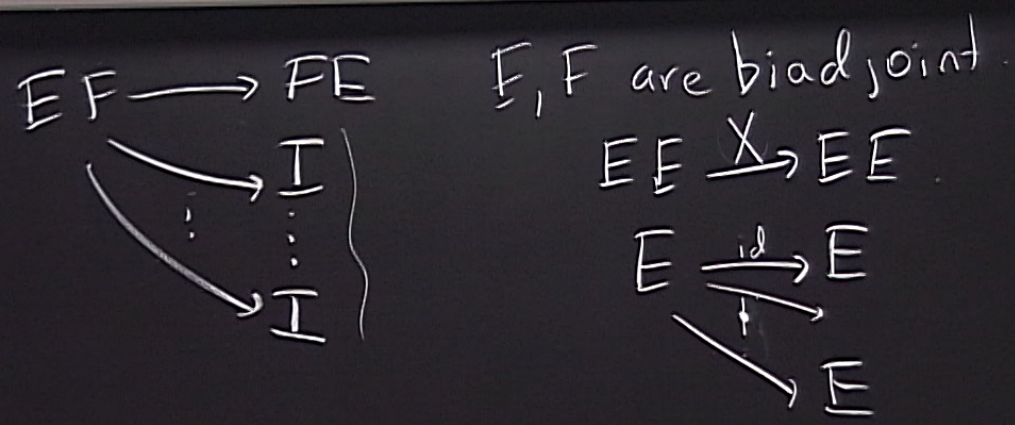 EF → FE
I
⋮ ⋮
I
E, F are biadjoint.
EE X→ EE.
E id→ E
E